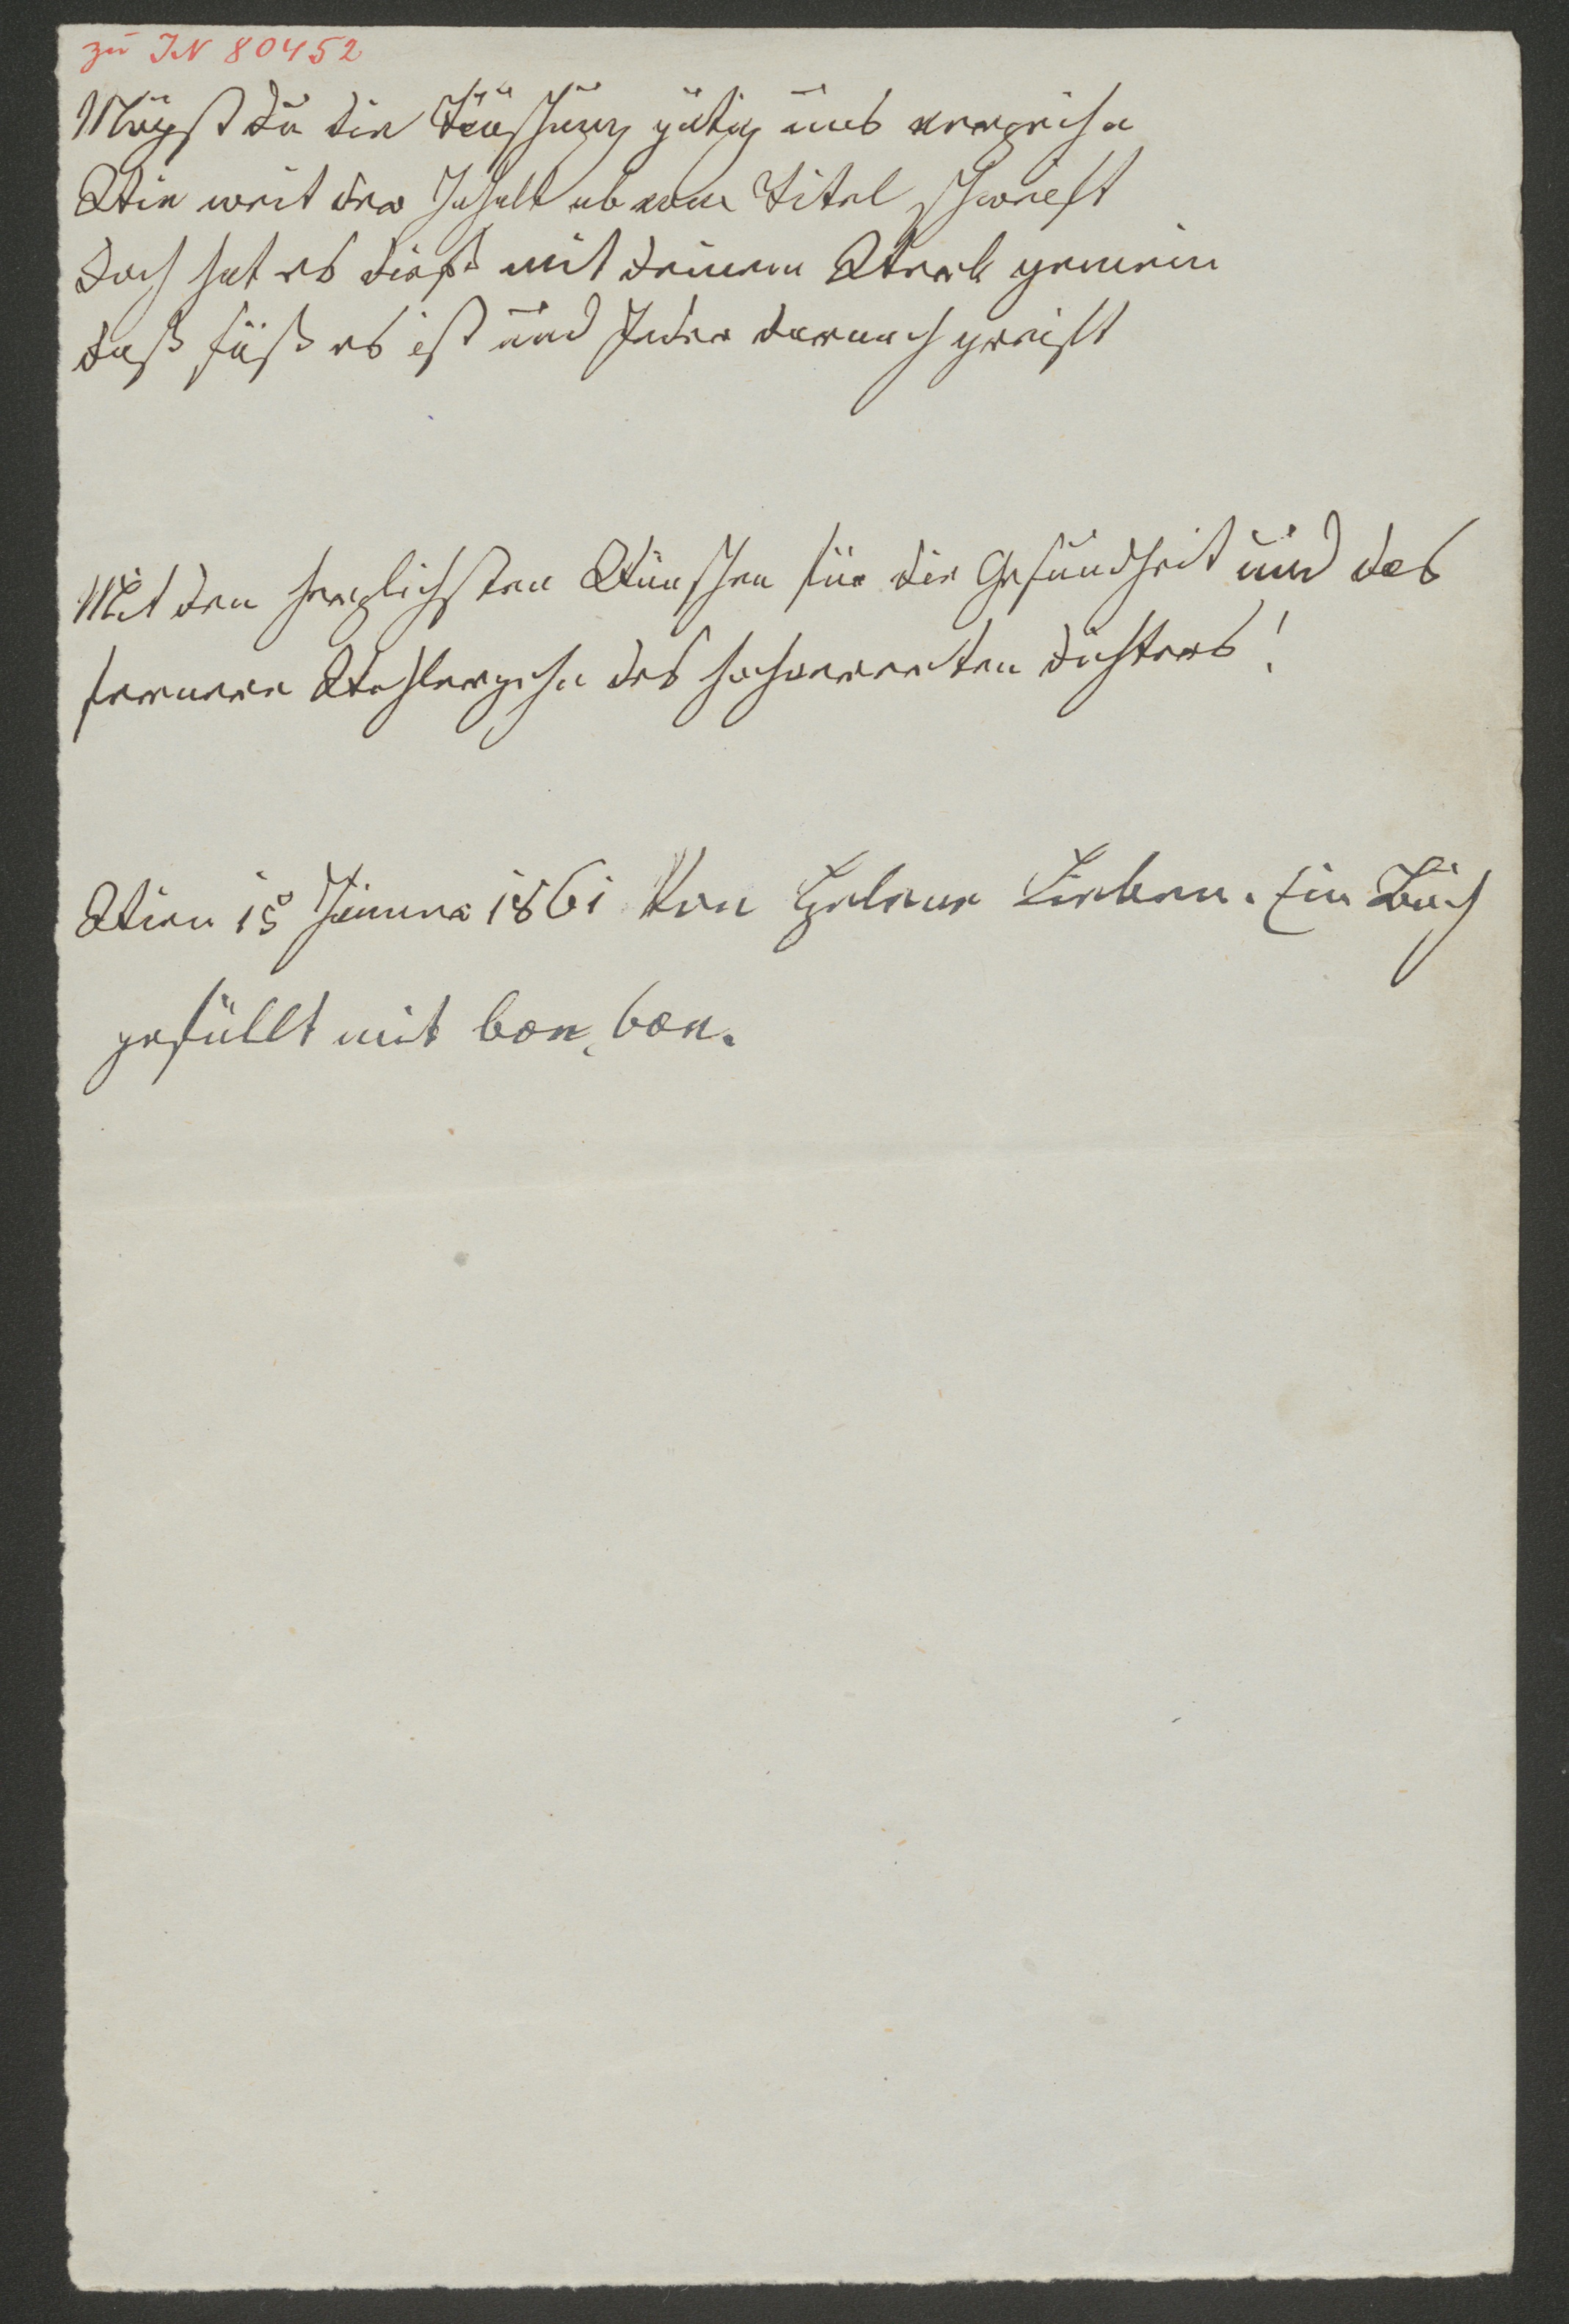 zu IN 80452
Mögst du die Täuschung gütig uns verzeihn
Wie weit der Inhalt ab vom Titel schweift
Doch hat es dieß mit deinem Werk gemein
daß süß es ist und Jeder darnach greift
Mit den herzlichsten Wünschen für die Gesundheit und das
fernere Wohlergehn des hochverehrten Dichters!
Wien 15 Jänner 1861 Von Helene Lieben. Ein Buch
gefüllt mit bon, bon.